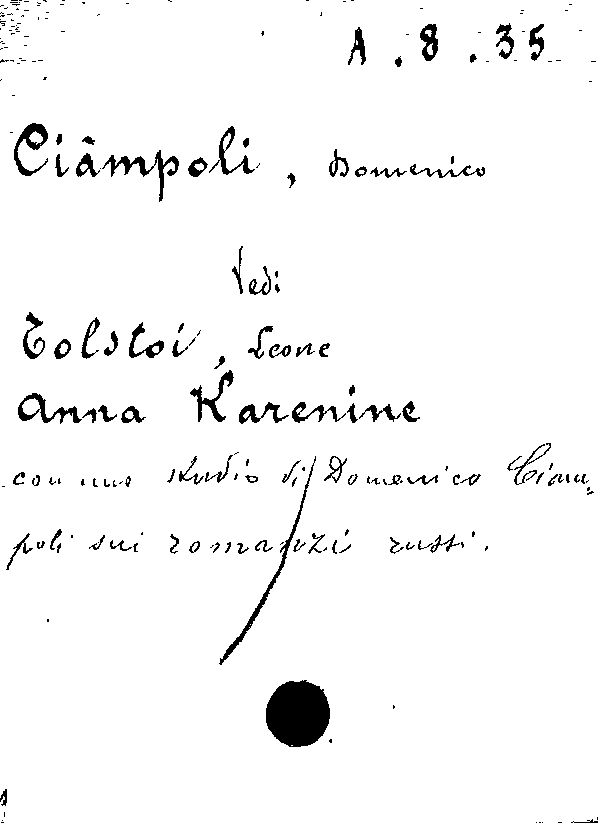 A. 8. 35
Ciàmpoli, Domenico
Vedi
Tolstoi, Leone
Anna Karenine
con uno studio di Domenico Ciam-
poli sui romanzi russi.